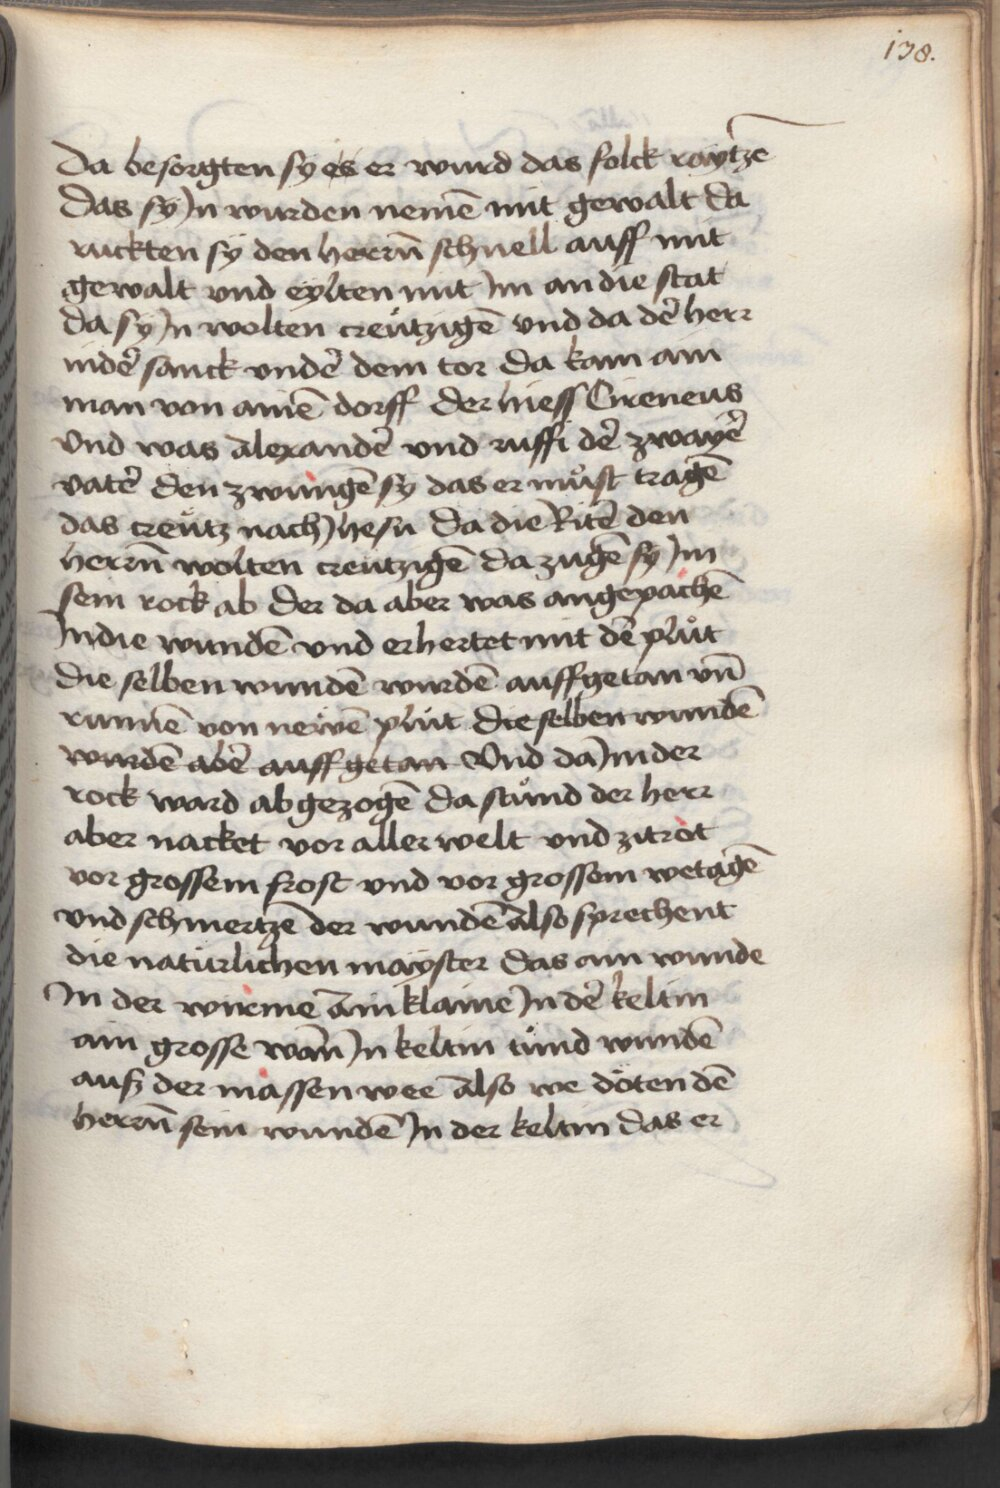 138.
Da besorgten sy es er wurd das folck raytze
das sy Jn wurden nemē mit gewalt da
ruckten sy den herrn̄ schnell auff mit
gewalt vnd eylten mit Jm an die stat
da sy Jn wolten creützigē vnd da der̄ herr
nider̄ sanck vnder̄ dem tor da kam ain
man von ainē dorff der hiess Cireneus
vnd was alexander̄ vnd ruffi der̄ zwayer̄
vater̄ den zwungē sy das er můst tragē
das creütz nach Jhesu da die Riter̄ den
herrn̄ wolten creützigē da zugē sy Jm
sein rock ab der da aber was angepachē
Jn die wundē vnd erhertet mit dē plůt
die selben wundē wurdē auffgetan vn̄
runnē von newē plůt die selben wundē
wurdē aber̄ auff getan Vnd da Jm der
rock ward abgezogē da stůnd der herr
aber nacket vor aller welt vnd zitrot
vor grossem frost vnd vor grossem wetagē
vnd schmertzē der wundē Also sprechent
die natürlichen mayster das ain wunde
Jn der wirme Ain klaine Jn der̄ keltin
ain grosse wan̄ Jn keltin tůnd wundē
ausz der massen wee Also we döten dē
herrn̄ sein wundē Jn der keltin das er